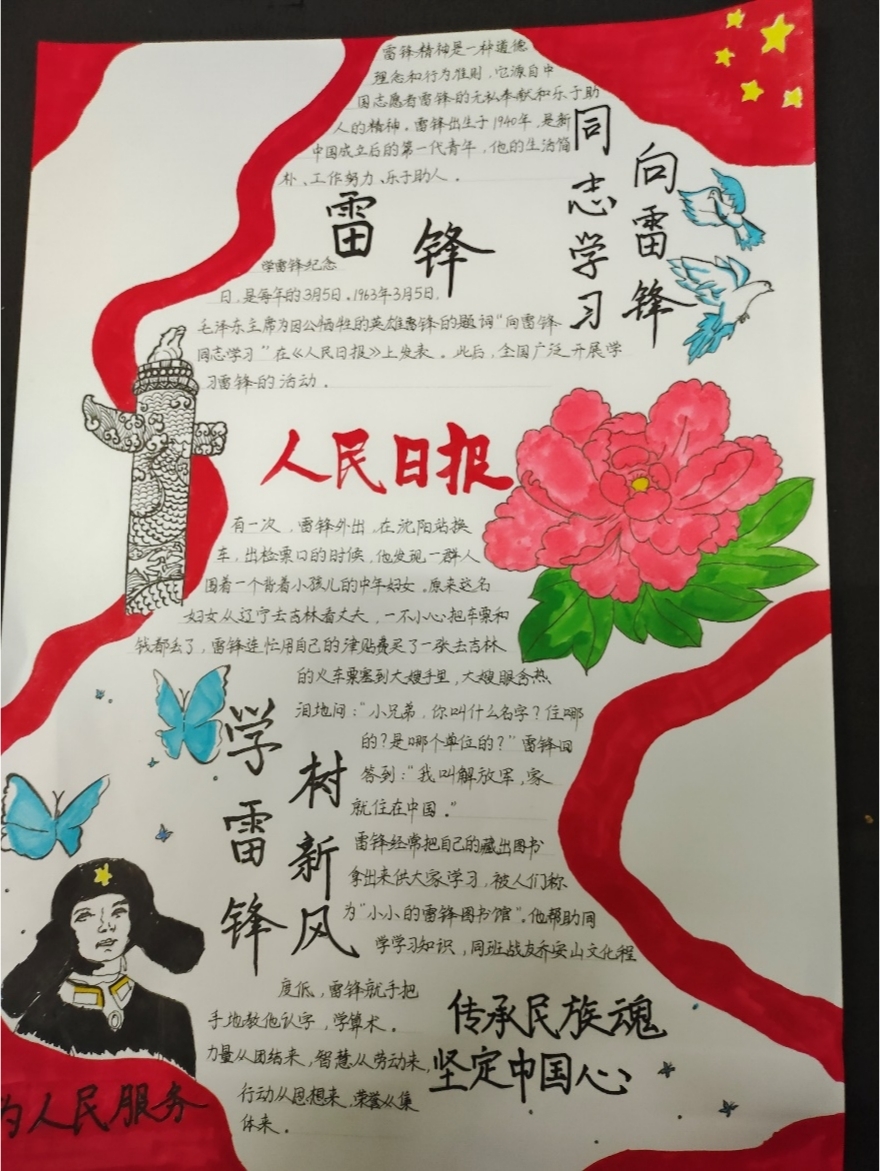 雷锋精神是一种道德
理念和行为准则，它源自中
国志愿者雷锋的无私奉献和乐于助
人的精神。雷锋出生于1940年，是新
中国成立后的第一代青年，他的生活简
朴、工作努力、乐于助人。
向雷锋
同志学习
雷锋
学雷锋纪念
日，是每年的3月5日。1963年3月5日，
毛泽东主席为因公牺牲的英雄雷锋的题词“向雷锋
同志学习”在《人民日报》上发表。此后，全国广泛开展学
习雷锋的活动。
人民日报
有一次，雷锋外出，在沈阳站换
车，出检票口的时候，他发现一群人
围着一个背着小孩儿的中年妇女。原来这名
妇女从辽宁去吉林看丈夫，一不小心把车票和
钱都丢了，雷锋连忙用自己的津贴费买了一张去吉林
的火车票塞到大嫂手里，大嫂眼含热
泪地问：“小兄弟，你叫什么名字？住哪
的？是哪个单位的？”雷锋回
答到：“我叫解放军，家
就住在中国。”
学雷锋
树新风
雷锋经常把自己的藏出图书
拿出来供大家学习，被人们称
为“小小的雷锋图书馆”。他帮助同
学学习知识，同班战友乔安山文化程
度低，雷锋就手把
手地教他认字，学算术。
力量从团结来，智慧从劳动来，
行动从思想来，荣誉从集
体来。
传承民族魂
坚定中国心
为人民服务